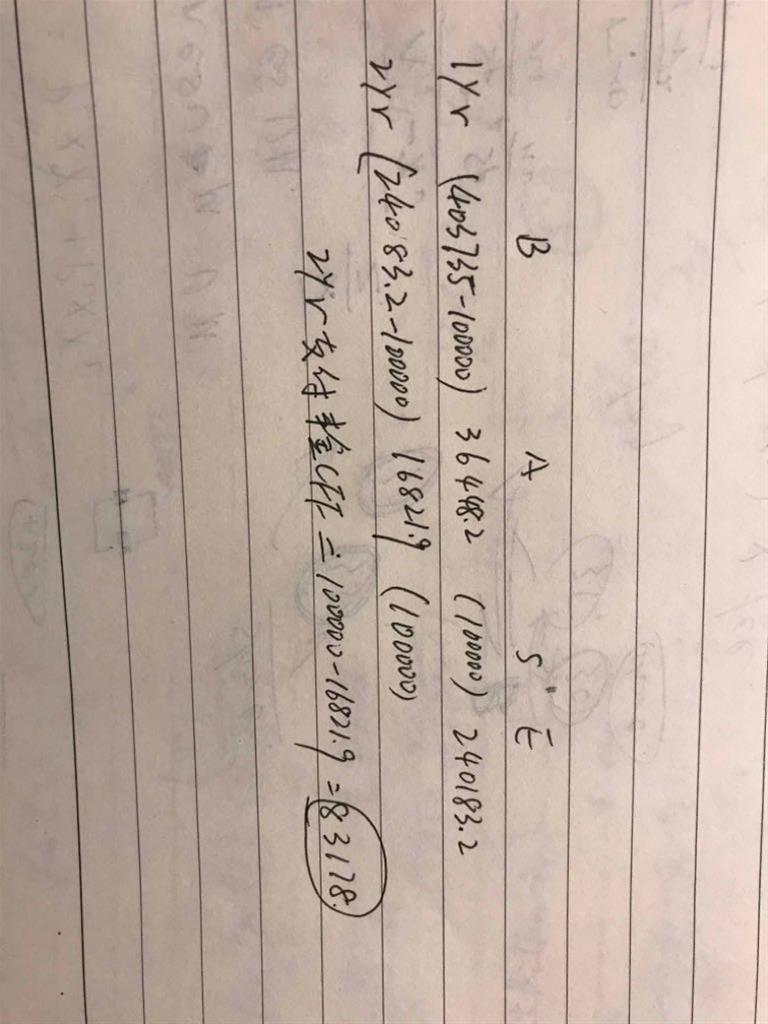 B A S E
1yr (403735-100000) 36448.2 (100000) 240183.2
2yr (240183.2-100000) 16821.9 (100000)
2yr支付本金 = 100000-16821.9 = 83178.